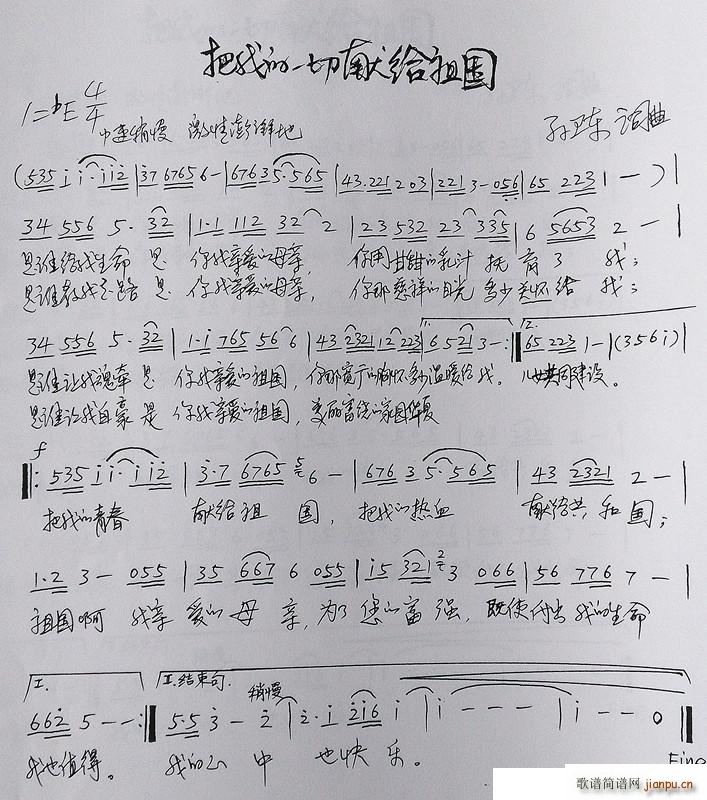 把我的一切献给祖国
1=bE 4/4
中速稍慢 激情澎湃地
孙卫东 词曲
(535 i i·i i2 | 37 6765 6- | 676 3 5·565 | 43·221 2 03 | 221 3-056 | 65 223 1 — )
34 556 5· 32 | 1·1 112 32 2 | 23 532 23 335 | 6 5653 2 — |
是谁给我生命 是 你我亲爱的母亲, 你用甘甜的乳汁 抚育了 我;
是谁教我走路 是 你我亲爱的母亲, 你那慈祥的目光 多少关怀给 我;
34 556 5· 32 | 1·i 765 56 6 | 43 2321 12 223 | 6 521 3 - :| 65 223 1 - | (356i) |
是谁让我魂牵 是 你我亲爱的祖国, 你那宽广的胸怀多少温暖给我。 儿女共同建设。
是谁让我自豪 是 你我亲爱的祖国, 美丽富饶的家园华夏
f
|: 535 i i·i i2 | 3·7 6765 6 — | 676 3 5·565 | 43 2321 2 — |
把我的青春 献给祖 国, 把我的热血 献给共和国;
1·2 3 — 055 | 35 667 6 055 | i5 321 3 066 | 56 776 7 — |
祖国啊 我亲 爱的母 亲, 为了您的富强, 既使付出我的生命
I. II.结束句. 稍慢
662 5 — — :| 5·5 3 — 2 | 2·i 2i6 i | i — — — | i — — 0 |
我也值得。 我的心 中 也快 乐。
Fine
歌谱简谱网 jianpu.cn